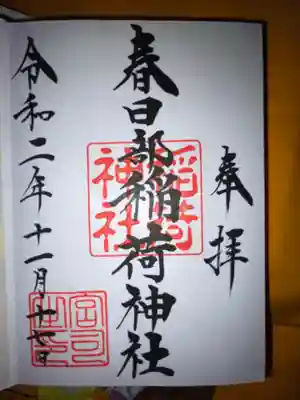 奉拝
春日部稲荷神社
稲荷神社
令和二年十一月十七日